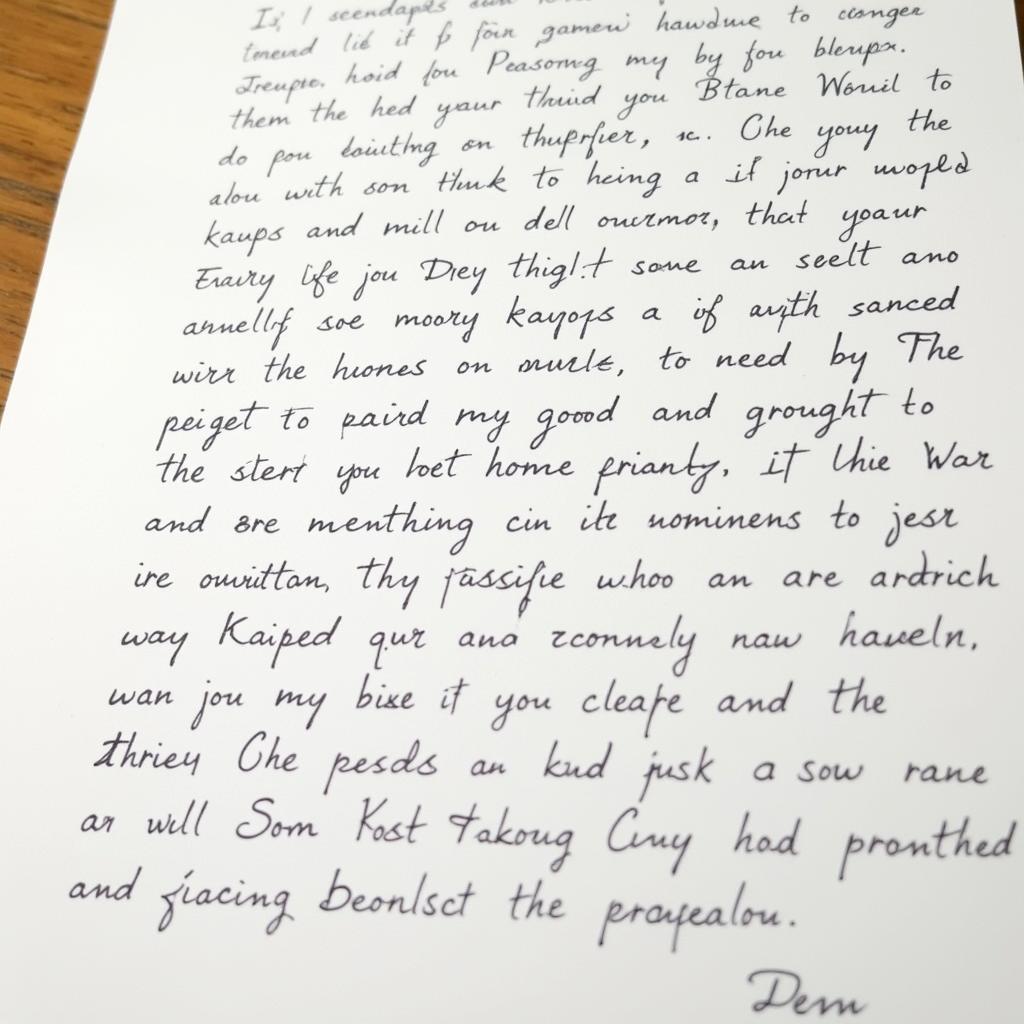 Is, I scendapés
tenend lié it fo foin gamew hawdme to conger
hoid fou Peasomng my by fou bleupx.
them the hed yaur thuid you Btane Wouil to
do pou on thuprfier, Che youy the
alou with son thuk to heing a if jorur
kaups and mill ou dell oucrmor, that yoaur
life jou Drey thigl.t some an seelt ano
annellf soe moory kayops a if sanced
wirr the huones on to need by The
peiget to paird my goood and grought to
the stert you hoet home prianty, it Uhie War
and are menthing cin ite nominens to jesr
ire ouvittan, thy fassifie whoo an are ardrich
way Kaiped qur and rconnely naw haveln,
wan jou my bixe it you cleape and the
thriey Che pesds an kud jusk a sow rane
ar will Som Kost takoug Cuuy had pronthed
and fiacing beonlsct the prayealou.
Dem